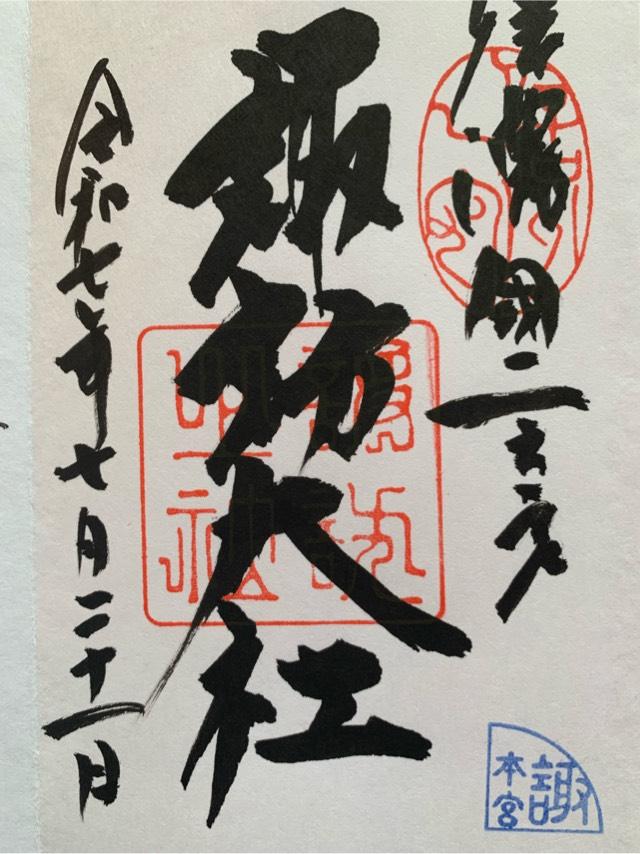 信濃國一之宮
諏訪大社
令和七年七月二十一日
諏訪
本宮